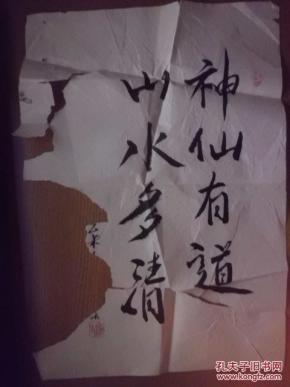 神仙有道
山水多清
孔夫子旧书网